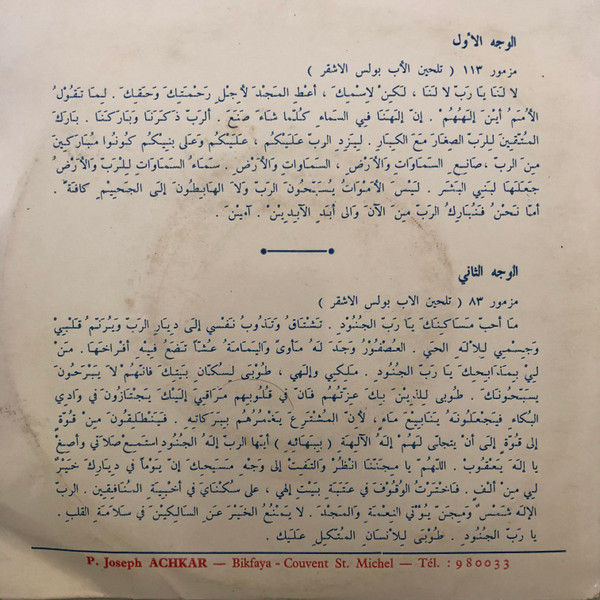 الوجه الأول
مزمور ١١٣ ( تلحين الأب بولس الاشقر )
لا لَنَا يَا رَبّ لا لَنَا ، لَكِنْ لاِسْمِكَ ، أعْطِ المَجْدَ لأَجْلِ رَحْمَتِكَ وَحَقِكَ . لِمَا تَقُولُ
الأُمَمُ أيْنَ إلَهُهُمْ . إنّ إلَهَنَا فِي السَمَاءِ كُلَّمَا شَاءَ صَنَعَ . ألرَبّ ذَكَرَنَا وَبَارَكَنَا . بَارَكَ
المُتَّقِينَ لِلرَبّ الصِغَارَ مَعَ الكِبَارِ . لِيَزِدِ الرَبّ عَلَيْكُم ، عَلَيْكُم وَعَلَى بَنِيكُم كُونُوا مُبَارَكِينَ
مِنَ الرَبّ ، صَانِعِ السَمَاوَاتِ وَالأَرْضِ ، السَمَاوَاتِ وَالأَرْضِ . سَمَاءُ السَمَاوَاتِ لِلْرَبّ وَالأَرْضُ
جَعَلَهَا لِبَنِي البَشَر . لَيْسَ الأَمْوَاتُ يُسَبّحُونَ الرَبّ وَلا الهَابِطُونَ إلَى الجَحِيْمِ كَافةً .
أمَا نَحْنُ فَنُبَارِكُ الرَبّ مِنَ الآنَ وَالى أبَدِ الآبِدِيْنَ . آمِيْنَ .
الوجه الثاني
مزمور ٨٣ ( تلحين الاب بولس الاشقر )
مَا أحَبّ مَسَاكِنَكَ يَا رَبّ الجُنُودِ . تَشْتَاقُ وَتَذُوبُ نَفْسِي إلَى دِيَارِ الرَبّ وَيُرَنّمُ قَلْبِيْ
وَجِسْمِي لِلإلَهِ الحَيّ . العُصْفُوْرُ وَجَدَ لَهُ مأوىً وَاليَمَامَةُ عُشّاً تَضَعُ فِيْهِ أفْرَاخَهَا . مَنْ
لِيْ بِمَذَابِحِكَ يَا رَبّ الجُنُودِ . مَلِكِي وإلَهِي ، طُوْبَى لِسُكّانِ بَيْتِكَ فَانّهُمْ لا يَبْرَحُونَ
يسَبّحُونَكَ . طُوبى لِلّذِيْنَ بِكَ عِزّتُهُمْ فَانّ فِي قُلُوبِهِم مَرَاقِيَ إلَيْكَ يَجْتَازُونَ فِي وَادِي
البُكَاءِ فَيَجْعَلُونَهُ يَنَابِيْعَ مَاءٍ ، لأنّ المُشْتَرِعَ يَغْمُرُهُم بِبَرَكَاتِهِ . فَيَنْطَلِقُونَ مِنْ قُوّةٍ
إلى قُوّةٍ إلَى أنْ يَتَجَلّى لَهُمْ إلَهُ الآلِهَةِ ( بِبَهَائِهِ ) أيّهَا الربّ إلَهُ الجُنُودِ اسْتَمِعْ صَلاتِي وأصِغْ
يا إلَهَ يَعْقُوبَ . اللّهُمّ يا مِجَنّنَا انْظُرْ وَالتَفِتْ إلى وَجْهِ مَسِيحِكَ إنّ يَوْماً فِي دِيَارِكَ خَيْرٌ
لِي مِنْ ألْفٍ . فَاخْتَرْتُ الوُقُوْفَ فِي عَتَبَةِ بَيْتِ إلهِي ، عَلى سُكْنَايَ فِي أخْبِيَةِ المُنَافِقِين . الربّ
الإلَهُ شَمْسٌ وَمِجَنّ يُؤْتِي النِعْمَةَ وَالمَجْدَ . لا يَمْنَعُ الخَيْرَ عَنِ السَالِكِيْنَ فِي سَلامَةِ القَلْبِ .
يا رَبّ الجُنُودِ . طُوْبَى لِلإنْسَانِ المُتّكِلِ عَلَيْكَ .
P. Joseph ACHKAR — Bikfaya - Couvent St. Michel — Tél. : 980033